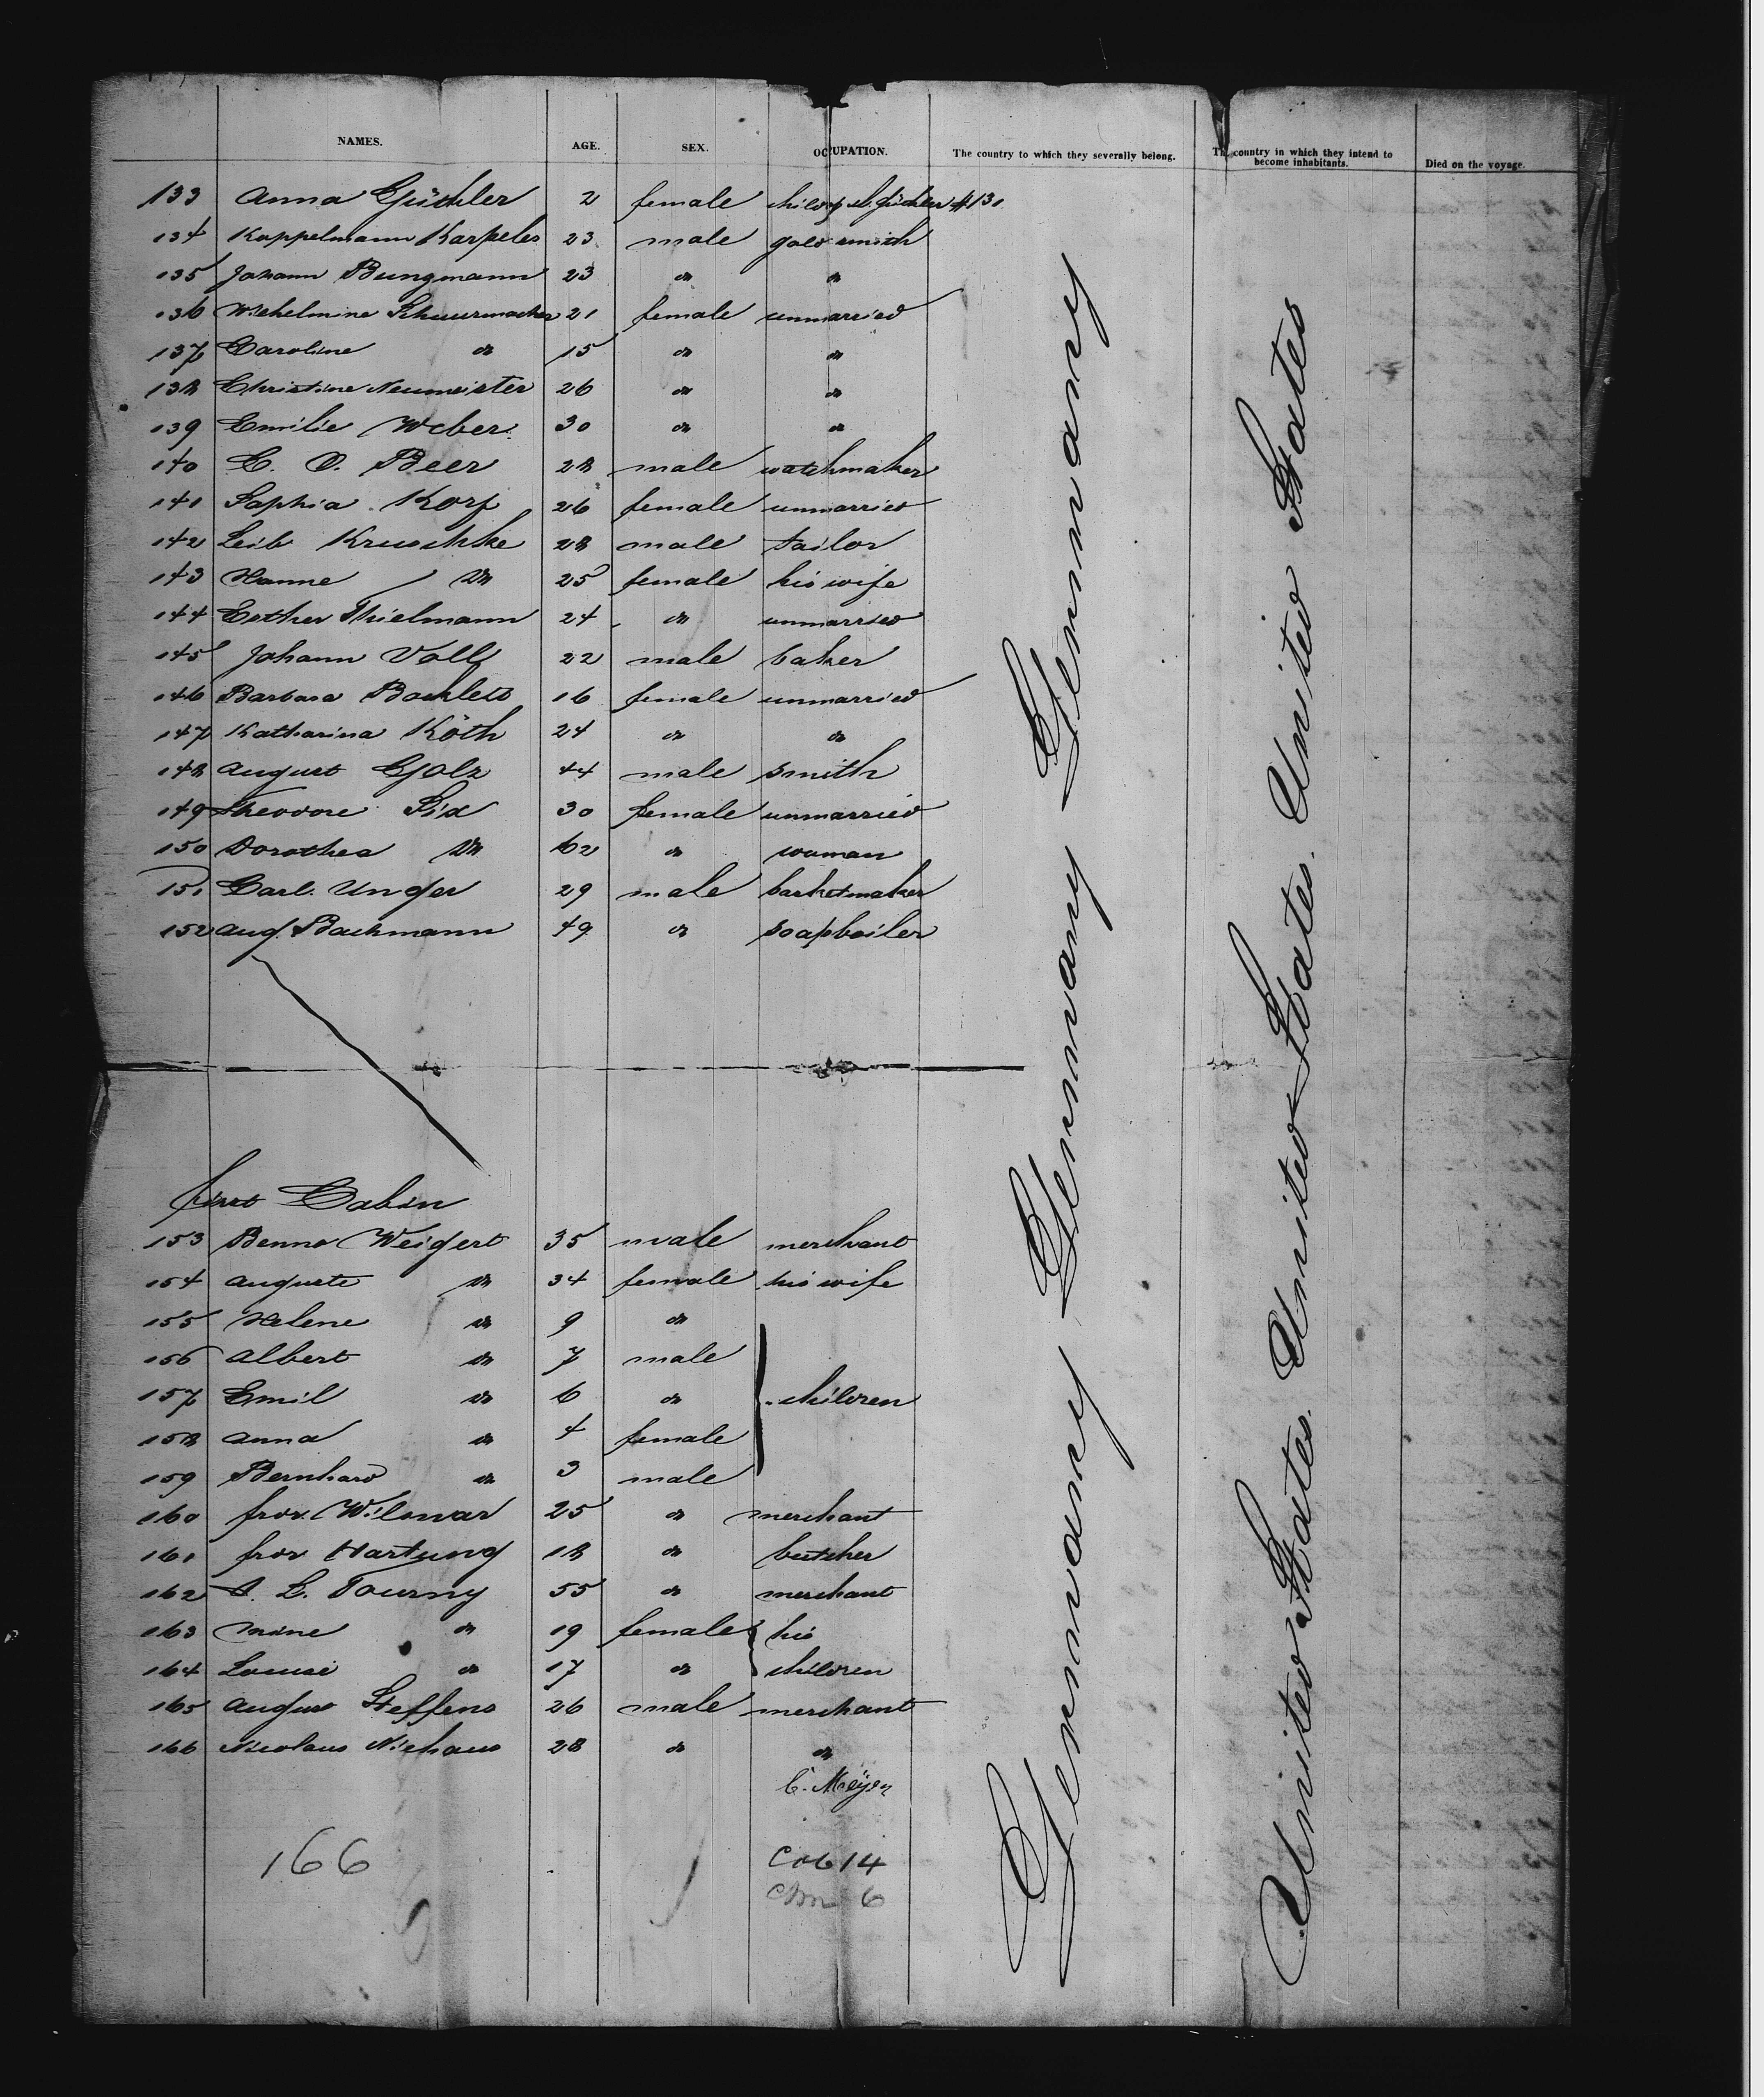 NAMES. AGE. SEX. OCCUPATION. The country to which they severally belong. The country in which they intend to become inhabitants. Died on the voyage.
133 Anna Güchler 2 female child of Güchler #131
134 Koppelmann Karpeles 23 male goldsmith
135 Johann Bungmann 23 do do
136 Wilhelmine Schuurmacher 21 female unmarried
137 Caroline do 15 do do
138 Christine Neumeister 26 do do
139 Emilie Weber 30 do do
140 C. O. Beer 28 male watchmaker
141 Sophia Korf 26 female unmarried
142 Leib Kruschke 28 male tailor
143 Hanne do 25 female his wife
144 Esther Thielmann 24 do unmarried
145 Johann Voll 22 male baker
146 Barbara 16 female unmarried
147 Katharina Köth 24 do do
148 August Golz 44 male smith
149 Theodore Six 30 female unmarried
150 Dorothea do 62 do woman
151 Carl Unger 29 male basketmaker
152 Aug. Bachmann 49 do soapboiler
first Cabin
153 Benno Weigert 35 male merchant
154 Auguste do 34 female his wife
155 Helene do 9 do
156 Albert do 7 male
157 Emil do 6 do children
158 Anna do 4 female
159 Bernhard do 3 male
160 Wilmar 25 do merchant
161 Hartung 18 do butcher
162 L. Tourny 55 do merchant
163 Mine do 19 female his
164 Louise do 17 do children
165 August Steffens 26 male merchant
166 Nicolaus Niehaus 28 do do
C. Meyer
166
Cab 14
6
Germany Germany Germany Germany
United States. United States. United States. United States